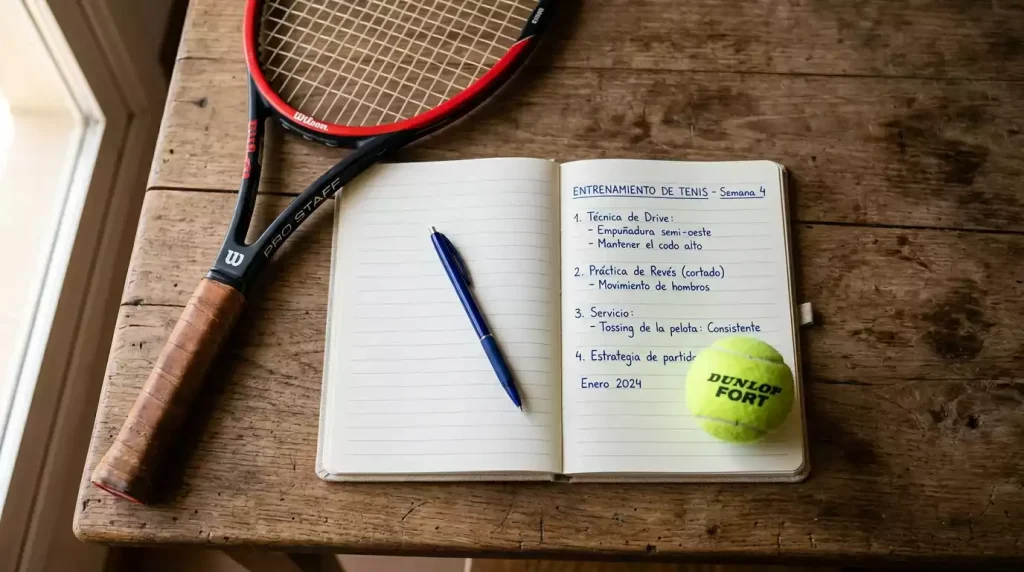 Wilson
PRO STAFF
W
ENTRENAMIENTO DE TENIS - Semana 4
1. Técnica de Drive:
- Empuñadura semi-oeste
- Mantener el codo alto
2. Práctica de Revés (cortado)
- Movimiento de hombros
3. Servicio:
- Tossing de la pelota: Consistente
4. Estrategia de partido
Enero 2024
DUNLOP
FORT